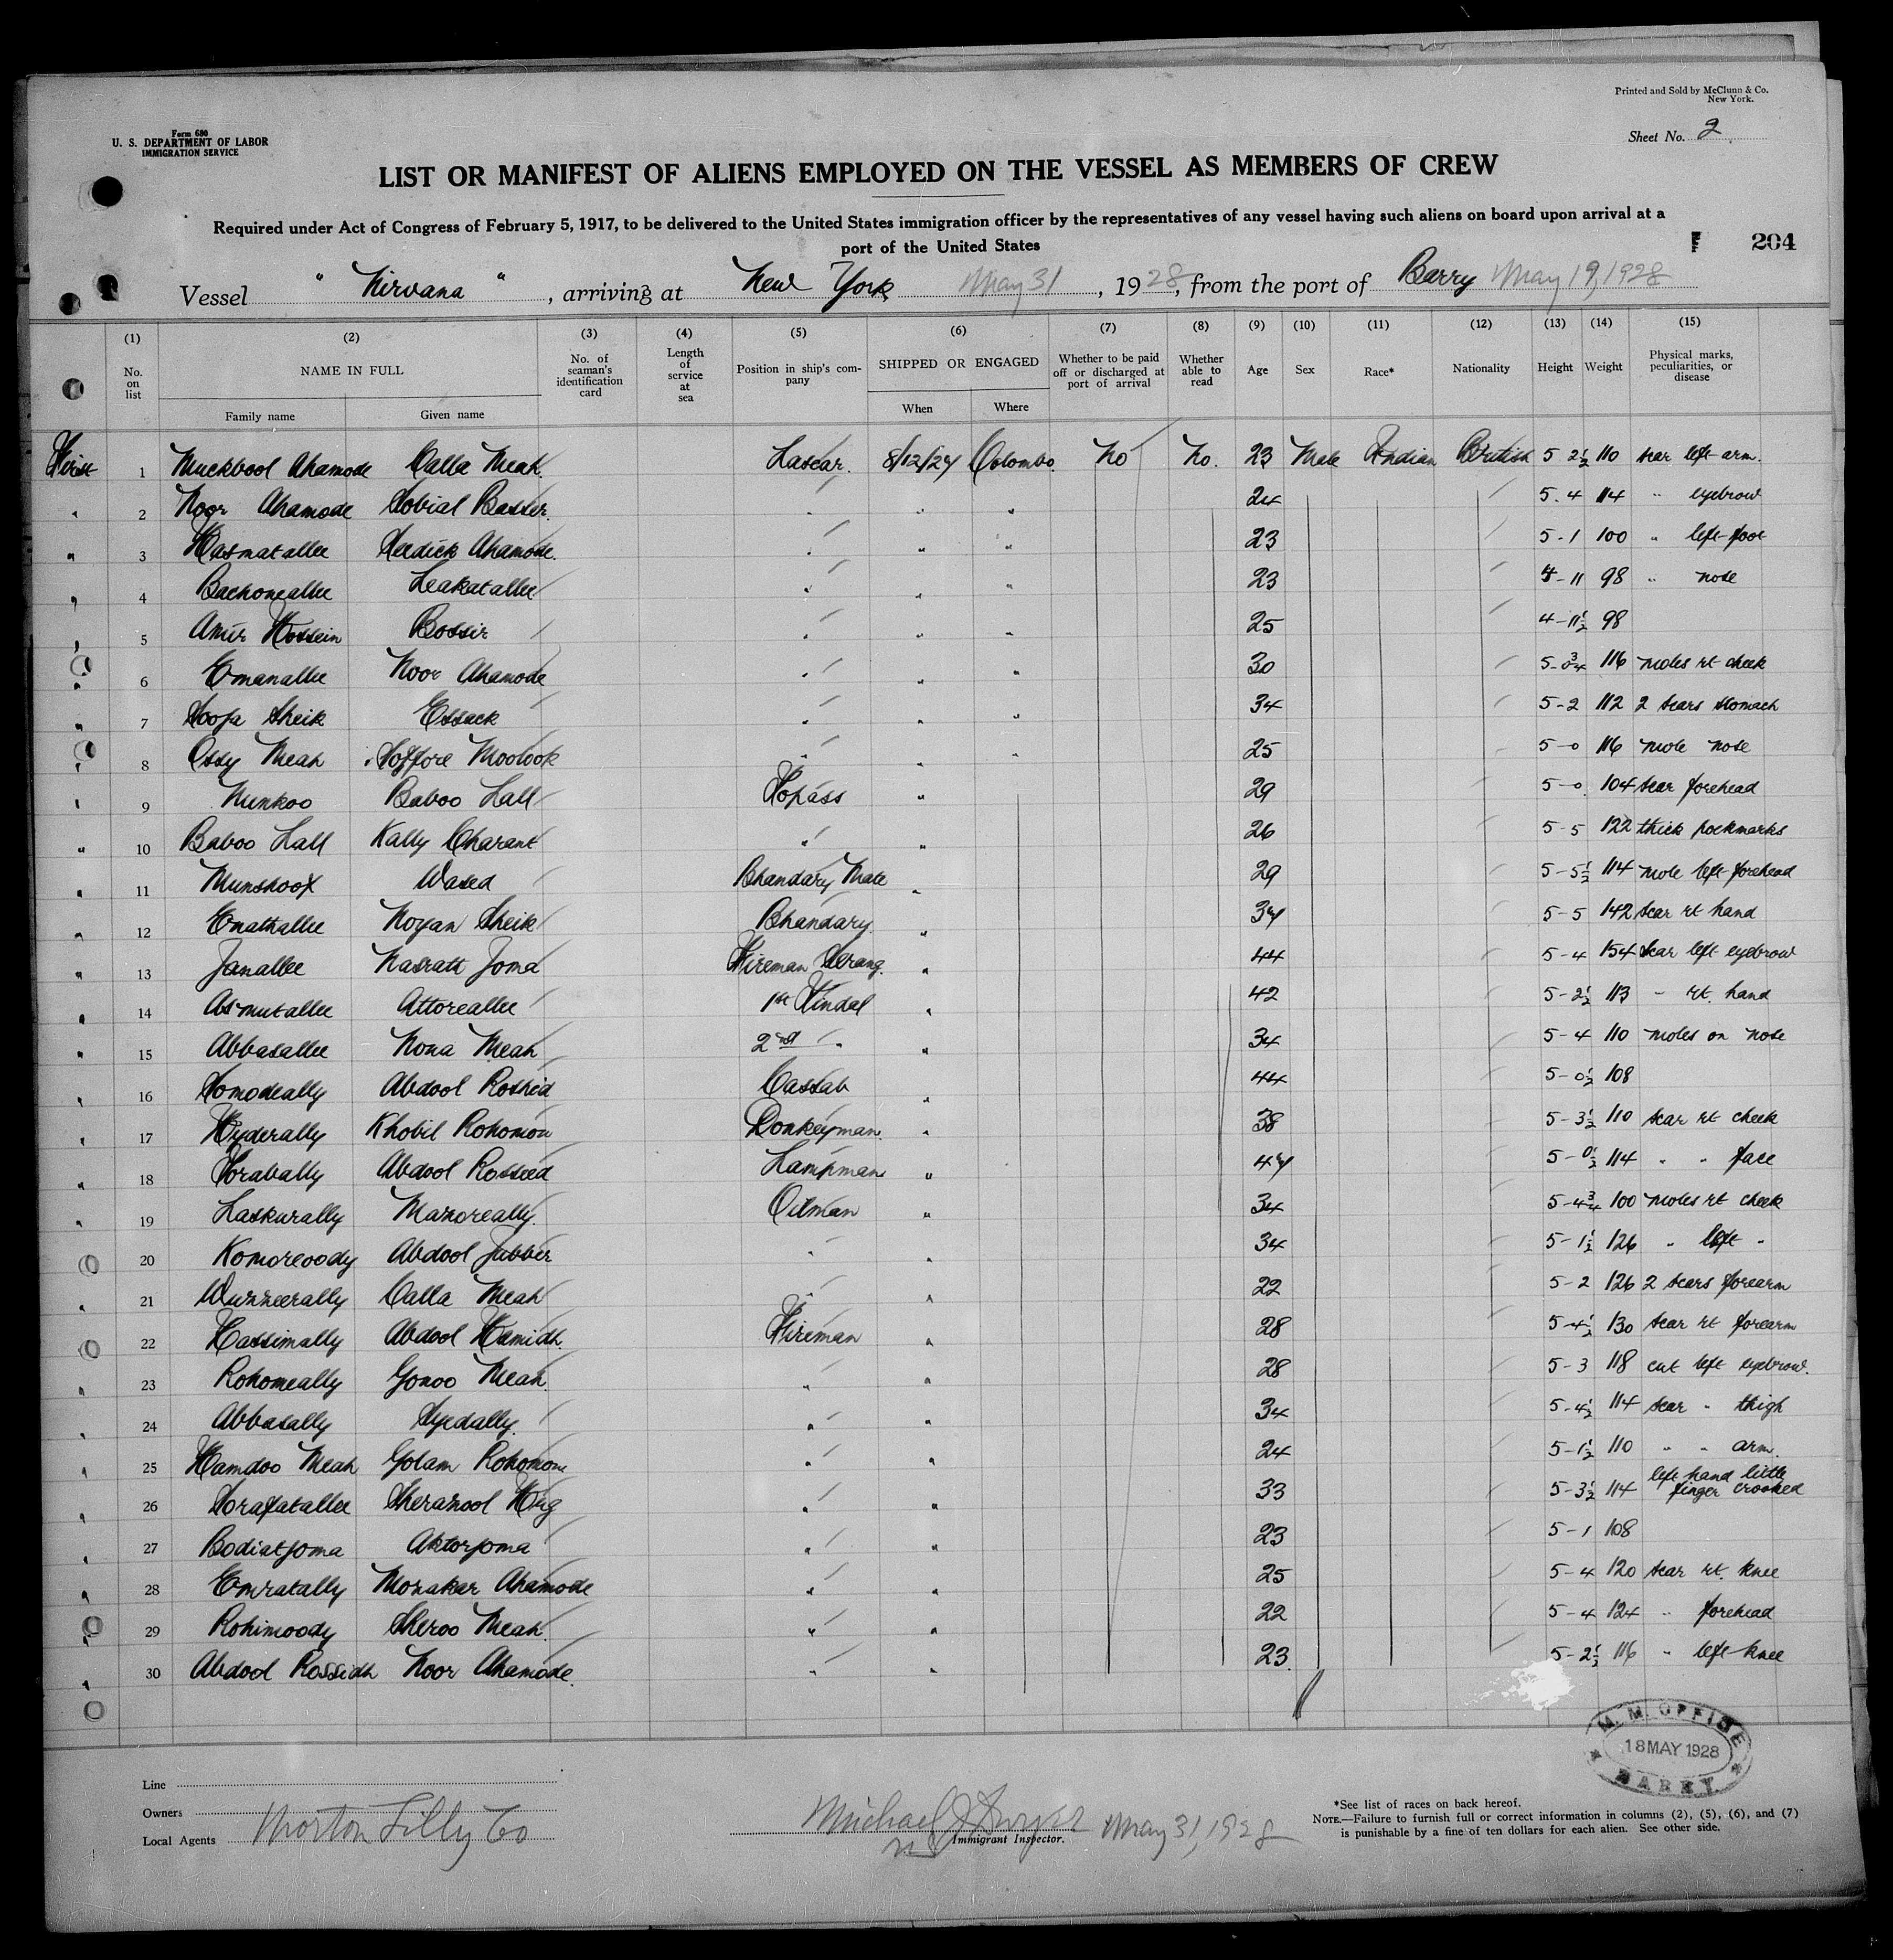 Printed and Sold by McClunn & Co.
New York.
Form 680
U. S. DEPARTMENT OF LABOR
IMMIGRATION SERVICE
Sheet No. 2
LIST OR MANIFEST OF ALIENS EMPLOYED ON THE VESSEL AS MEMBERS OF CREW
Required under Act of Congress of February 5, 1917, to be delivered to the United States immigration officer by the representatives of any vessel having such aliens on board upon arrival at a
port of the United States
204
Vessel " Nirvana " , arriving at New York May 31 , 1928, from the port of Barry May 19, 1928
(1) (2) (3) (4) (5) (6) (7) (8) (9) (10) (11) (12) (13) (14) (15)
No. on list NAME IN FULL No. of seaman's identification card Length of service at sea Position in ship's company SHIPPED OR ENGAGED Whether to be paid off or discharged at port of arrival Whether able to read Age Sex Race* Nationality Height Weight Physical marks, peculiarities, or disease
Family name Given name When Where
First 1 Muckbool Ahamode Calla Meah Lascar. Colombo. No No. 23 Male Indian British 5 2½ 110 scar left arm.
" 2 Noor Ahamode Sobial Basser. " " " 24 5-4 114 " eyebrow
" 3 Hasmatallee Seedick Ahamode. " " " 23 5-1 100 " left foot
" 4 Bachoneallee Leakatallee " " " 23 4-11 98 " nose
" 5 Amir Hossein Bossir " " " 25 4-11½ 98
" 6 Emanallee Noor Ahamode " " " 30 5-0¾ 116 moles rt cheek
" 7 Soofa Sheik Essack " " " 34 5-2 112 2 scars stomach
" 8 Ossy Meah Soffore Moolook " " " 25 5-0 116 mole nose
" 9 Nunkoo Baboo Lall Topass " 29 5-0 104 scar forehead
" 10 Baboo Lall Kally Charant " " 26 5-5 122 thick pockmarks
" 11 Munshoof Wased Bhandary Mate " 29 5-5½ 114 mole left forehead
" 12 Enathallee Noyan Sheik Bhandary " 5-5 142 scar rt hand
" 13 Janallee Nasratt Joma Fireman Serang. " 44 5-4 154 scar left eyebrow
" 14 Asmutallee Attoreallee 1st Tindal " 42 5-2½ 113 " rt. hand
" 15 Abbasallee Nona Meah 2nd " " 34 5-4 110 moles on nose
" 16 Somodeally Abdool Roshid Cassab " 44 5-0½ 108
" 17 Hyderally Khobil Rohomon Donkeyman. " 38 5-3½ 110 scar rt cheek
" 18 Sorabally Abdool Rosseed Lampman " 5-0½ 114 " " face
" 19 Laskurally Manoreally. Oilman " 34 5-4¾ 100 moles rt cheek
20 Komoreoody Abdool Jubber " " 34 5-1½ 126 " left "
" 21 Wuzzeerally Calla Meah " " 22 5-2 126 2 scars forearm
22 Hassimally Abdool Hamidh. Fireman " 28 5-4½ 130 scar rt forearm
" 23 Rohomeally Gonoo Meah. " " 28 5-3 118 cut left eyebrow.
" 24 Abbasally Syedally. " " 34 5-4½ 114 scar " thigh
" 25 Hamdoo Meah Golam Rohomone " " 24 5-1½ 110 " " arm.
" 26 Sorafatallee Sherazool Hug " " 33 5-3½ 114 left hand little finger crooked
" 27 Bodiatjoma Aktorjoma " " 23 5-1 108
" 28 Emratally Mozakar Ahamode " " 25 5-4 120 scar rt. knee
" 29 Rohimoody Sheroo Meah. " " 22 5-4 124 " forehead
" 30 Abdool Rossidh Noor Ahamode. " " 23. 5-2½ 116 " left knee
M. M. OFFICE
18 MAY 1928
BARRY
Line
Owners
Local Agents Morton Lilly Co
Michael J Dwyer
Immigrant Inspector. May 31, 1928
*See list of races on back hereof.
NOTE.—Failure to furnish full or correct information in columns (2), (5), (6), and (7)
is punishable by a fine of ten dollars for each alien. See other side.